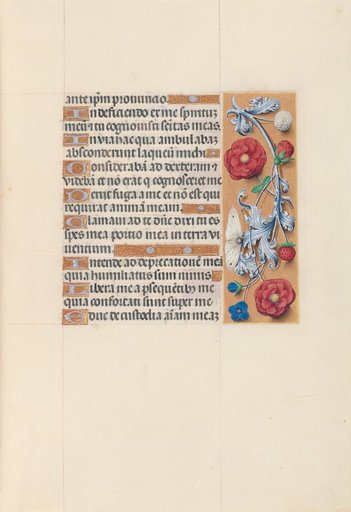 ante ipm pronuncio.
In deficiendo et me spiritus
meus tu cognouisti semitas meas.
In via hac qua ambulabaz
absconderunt laqueu michi
Considerabā ad dexteram z
videbā et nō erat q cognosceret me
Perijt fuga a me et nō est qui
requirat animā meam.
Clamaui ad te dn̄e dixi tu es
spes mea portio mea in terra vi
uentium.
Intende ad deprecationē meā
quia humiliatus sum nimis
Libera me a psequētib9 me
quia confortati sunt super me
Educ de custodia aīam meaz